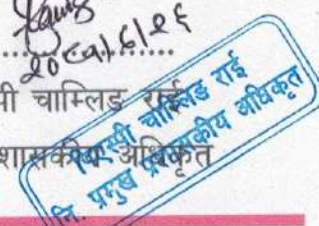 २०८१/६/२६
....................
पी चाम्लिङ राई
शासकीय अधिकृत
चाम्लिङ राई
नि. प्रमुख प्रशासकीय अधिकृत